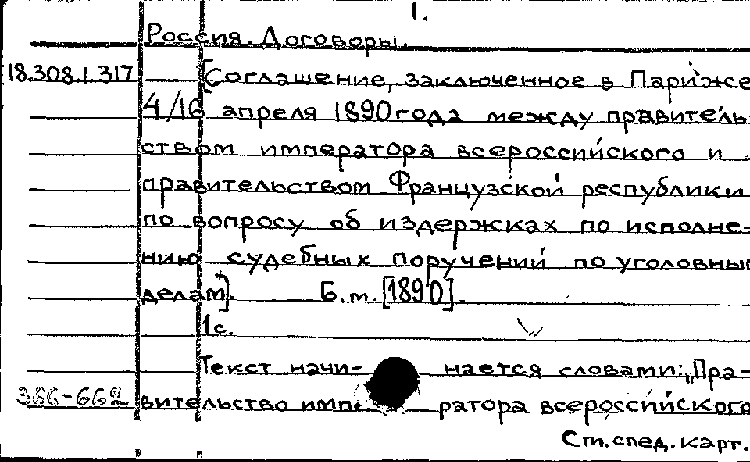 1.
Россия. Договоры.
18.308.1.317 [Соглашение, заключенное в Париже
4/16 апреля 1890 года между правитель-
ством императора всероссийского и
правительством Французской республики
по вопросу об издержках по исполне-
нию судебных поручений по уголовным
делам]. Б.м. [1890].
1с.
Текст начинается словами: „Пра-
вительство императора всероссийского
Сm. след. карт.